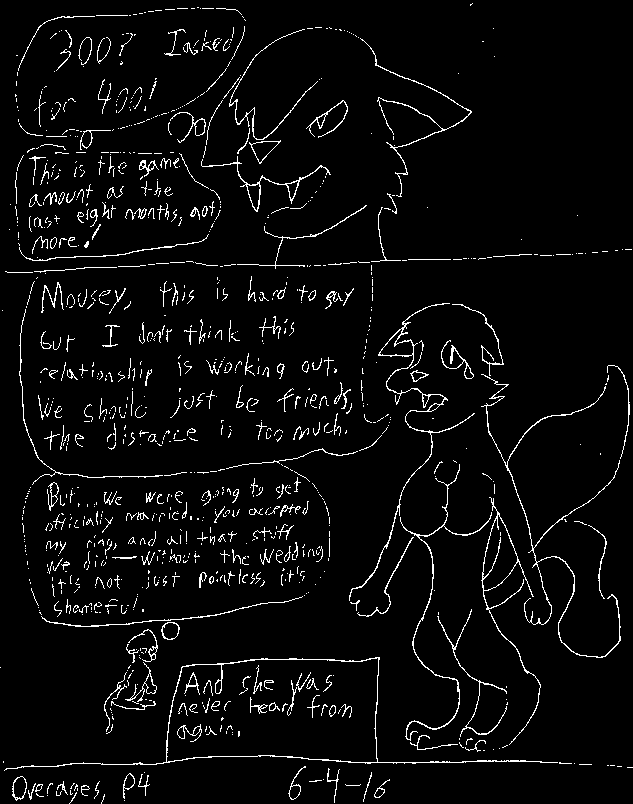 300? I asked
for 400!
This is the same
amount as the
last eight months, not
more!
Mousey, this is hard to say
but I don't think this
relationship is working out.
We should just be friends,
the distance is too much.
But... we were going to get
officially married... you accepted
my ring, and all that stuff
we did — without the wedding
it's not just pointless, it's
shameful.
And she was
never heard from
again.
Overages, P4
6-4-16